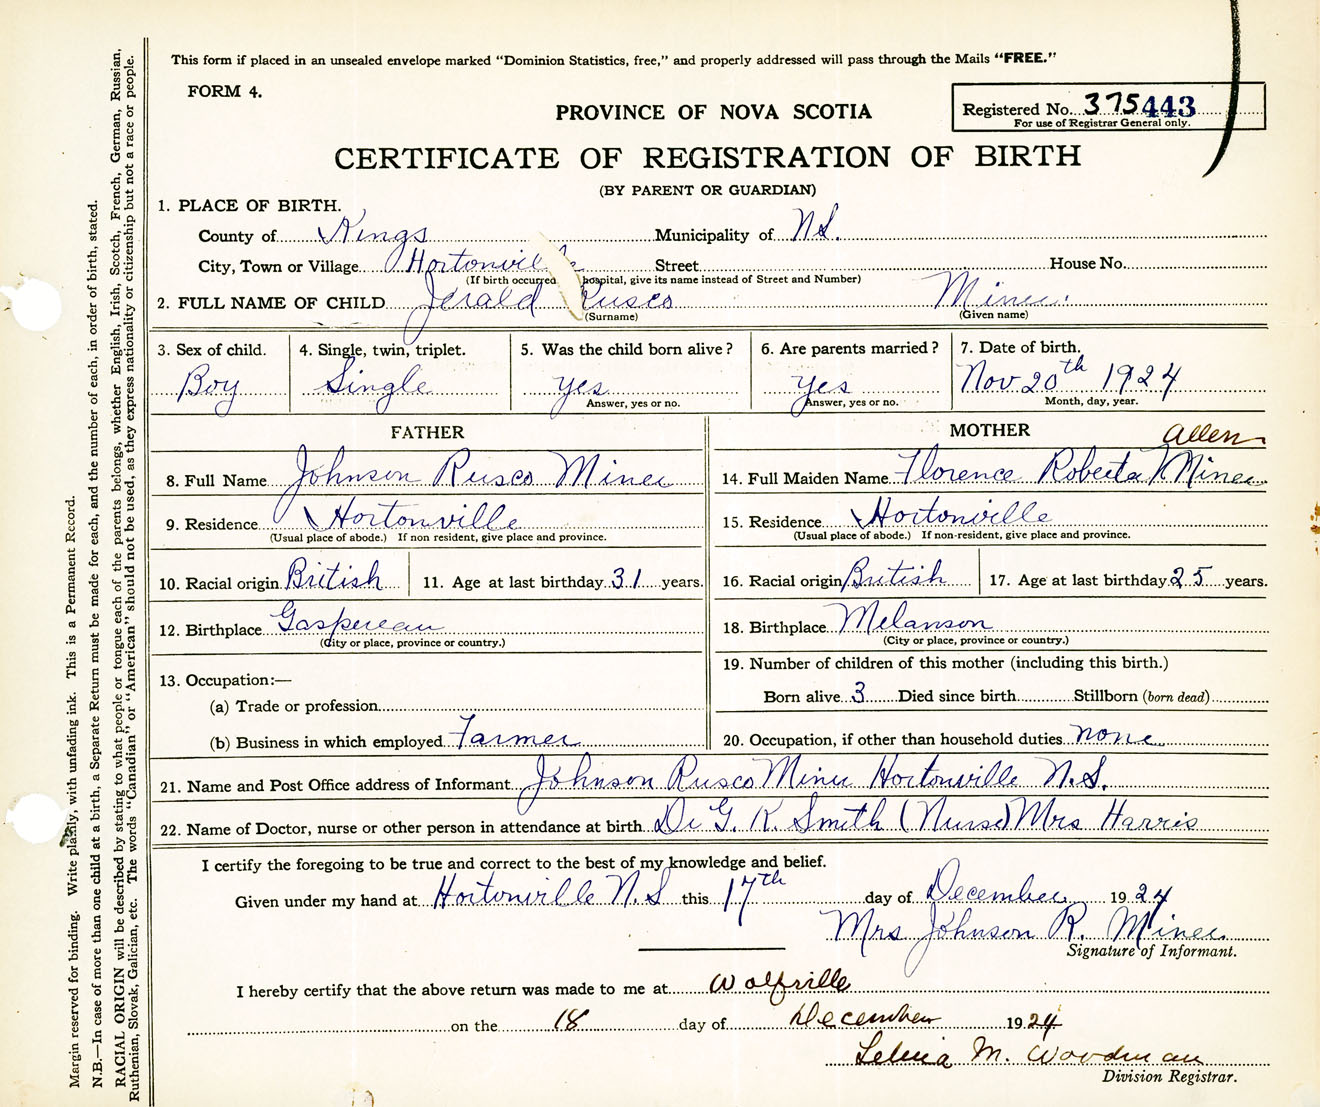 This form if placed in an unsealed envelope marked "Dominion Statistics, free," and properly addressed will pass through the Mails "FREE."
FORM 4.
PROVINCE OF NOVA SCOTIA
Registered No. 375443
For use of Registrar General only.
CERTIFICATE OF REGISTRATION OF BIRTH
(BY PARENT OR GUARDIAN)
1. PLACE OF BIRTH.
County of Kings Municipality of N.S.
City, Town or Village Hortonville Street House No.
(If birth occurred hospital, give its name instead of Street and Number)
2. FULL NAME OF CHILD Jerald Rusco Miner
(Surname) (Given name)
3. Sex of child. 4. Single, twin, triplet. 5. Was the child born alive? 6. Are parents married? 7. Date of birth.
Boy Single yes yes Nov 20th 1924
Answer, yes or no. Answer, yes or no. Month, day, year.
FATHER
8. Full Name Johnson Rusco Miner
9. Residence Hortonville
(Usual place of abode.) If non resident, give place and province.
10. Racial origin British 11. Age at last birthday 31 years.
12. Birthplace Gaspereau
(City or place, province or country.)
13. Occupation:—
(a) Trade or profession
(b) Business in which employed Farmer
MOTHER
Allen
14. Full Maiden Name Florence Roberta Miner
15. Residence Hortonville
(Usual place of abode.) If non-resident, give place and province.
16. Racial origin British 17. Age at last birthday 25 years.
18. Birthplace Melanson
(City or place, province or country.)
19. Number of children of this mother (including this birth.)
Born alive 3 Died since birth Stillborn (born dead)
20. Occupation, if other than household duties none
21. Name and Post Office address of Informant Johnson Rusco Miner Hortonville N.S.
22. Name of Doctor, nurse or other person in attendance at birth Dr G. K. Smith (Nurse) Mrs Harris
I certify the foregoing to be true and correct to the best of my knowledge and belief.
Given under my hand at Hortonville N.S this 17th day of December 1924
Mrs Johnson R. Miner
Signature of Informant.
I hereby certify that the above return was made to me at Wolfville
on the 18 day of December 1924
M. Woodman
Division Registrar.
Margin reserved for binding. Write plainly, with unfading ink. This is a Permanent Record.
N.B.—In case of more than one child at a birth, a Separate Return must be made for each, and the number of each, in order of birth, stated.
RACIAL ORIGIN will be described by stating to what people or tongue each of the parents belongs, whether English, Irish, Scotch, French, German, Russian,
Ruthenian, Slovak, Galician, etc. The words "Canadian" or "American" should not be used, as they express nationality or citizenship but not a race or people.